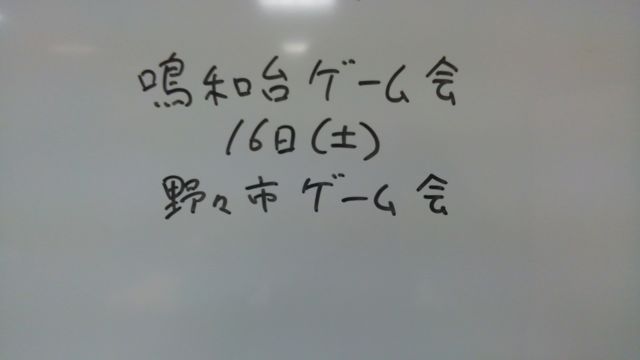 鳴和台ゲーム会
16日(土)
野々市ゲーム会